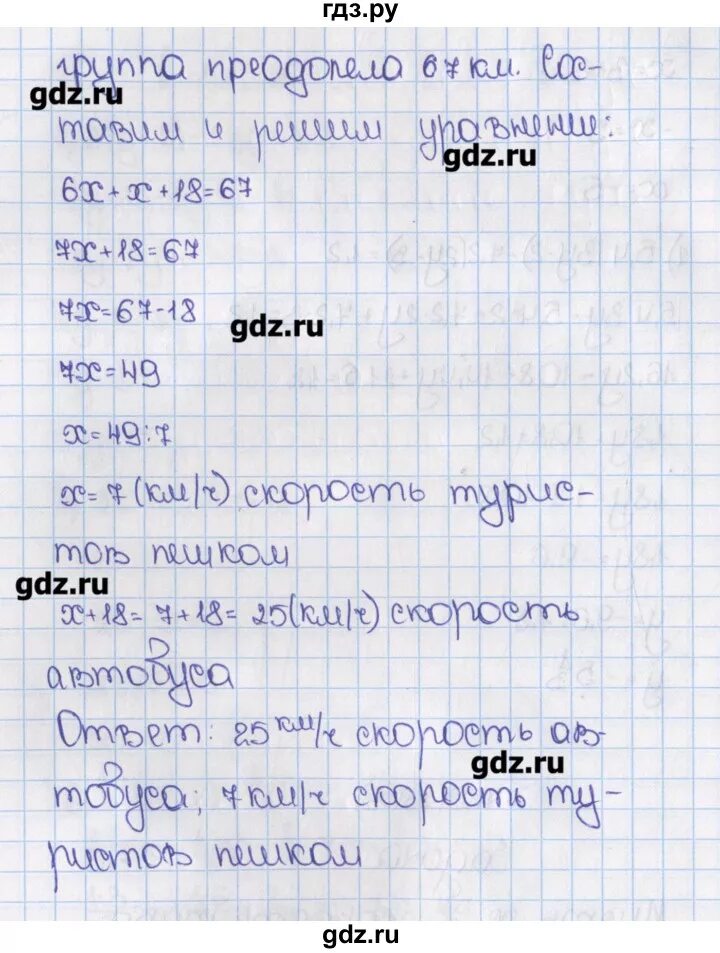 гдз.ру
группа преодолела 67 км. Сос-
gdz.ru
тавим и решим уравнение:
gdz.ru
6x + x + 18 = 67
7x + 18 = 67
7x = 67 - 18
gdz.ru
7x = 49
x = 49 : 7
x = 7 (км/ч) скорость турис-
тов пешком
gdz.ru
x + 18 = 7 + 18 = 25 (км/ч) скорость
автобуса
Ответ: 25 км/ч скорость ав-
gdz.ru
тобуса; 7 км/ч скорость ту-
ристов пешком
gdz.ru